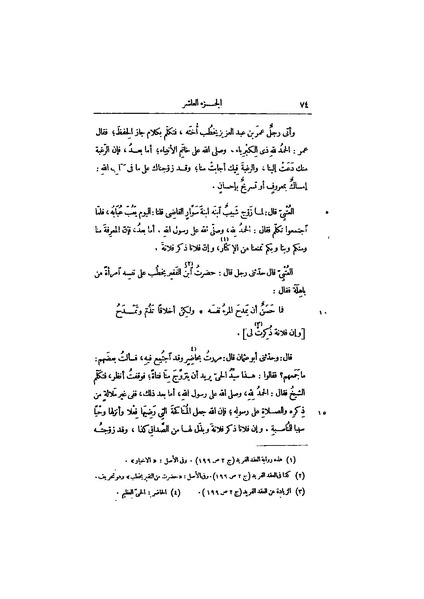 ٧٤ الجزء العاشر
وأتى رجلٌ عمرَ بن عبد العزيز يخطُب أختَه ، فتكلّم بكلام جاز الحِفظَ؛ فقال
عمر : الحمدُ لله ذى الكبرياء ، وصلى الله على خاتم الأنبياء؛ أما بعدُ ، فإن الرّغبة
منك دَعَتْ إلينا ، والرغبةَ فيك أجابتْ منّا؛ وقد زوّجناك على ما فى الله :
إمساكٌ بمعروفٍ أو تسريحٌ بإحسانٍ .
العُتْبىّ قال: لما زَوّج شَبيبٌ آبنَه آبنةَ سَوّارٍ القاضى قلنا: اليومَ يَعُبّ عُبَابُه، فلمّا
٥
آجتمعوا تكلّم فقال : الحمدُ لله، وصلّى الله على رسول الله . أما بعدُ، فإن المعرفةَ منا
ومنكم وبنا وبكم تمنعنا من الإكثار(١)، وإنّ فلانًا ذَكر فلانةَ .
العُتْبىّ قال حدّثنى رجل قال : حضرتُ آبنَ(٢) الفَقير يخطُب على نفسه آمرأةً من
باهلةَ فقال :
فما حَسَنٌ أن يمدحَ المرءُ نفسَه * ولكنّ أخلاقًا تُذَمّ وتُمْدَحُ
١٠
[وإن فلانةَ ذُكِرتْ لى](٣) .
قال: وحدّثنى أبو عثمان قال: مررتُ بحاضرٍ(٤) وقد آجتمع فيه، فسألتُ بعضَهم:
ما جَمَعهم؟ فقالوا : هذا سيّدُ الحىّ يريد أن يتزوّج منّا فتاةً؛ فوقفتُ أنظر، فتكلّم
الشيخُ فقال : الحمدُ لله، وصلى الله على رسول الله، أما بعد ذلك، ففى غير مَلالةٍ من
ذكره والصلاةِ على رسوله؛ فإن الله جعل المُناكحةَ التى رَضِيَها فِعلًا وأنزلها وَحْيًا
١٥
سببًا للمُناسبةِ . وإن فلانًا ذكر فلانةَ وبذَل لها من الصَّداق كذا ، وقد زوّجتُه
(١) هذه رواية العقد الفريد (ج ٢ ص ١٩٦) . وفى الأصل : « الأخبار » .
(٢) كذا فى العقد الفريد (ج ٢ ص ١٩٦) . وفى الأصل : «حضرت من الفقير يخطب» وهو تحريف .
(٣) الزيادة عن العقد الفريد (ج ٢ ص ١٩٦) . (٤) الحاضر : الحىّ العظيم .